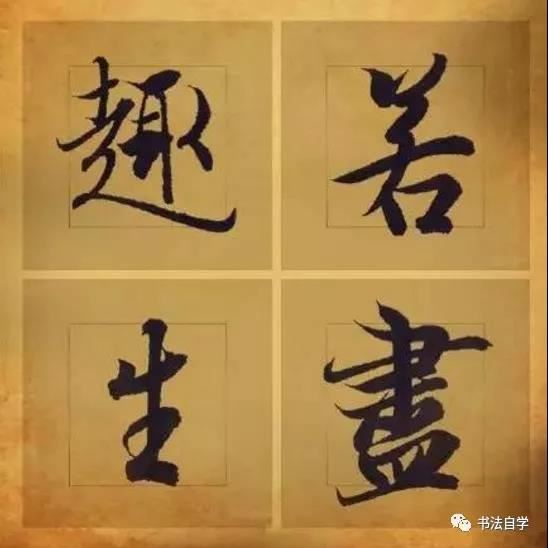 若盡
趣生
书法自学